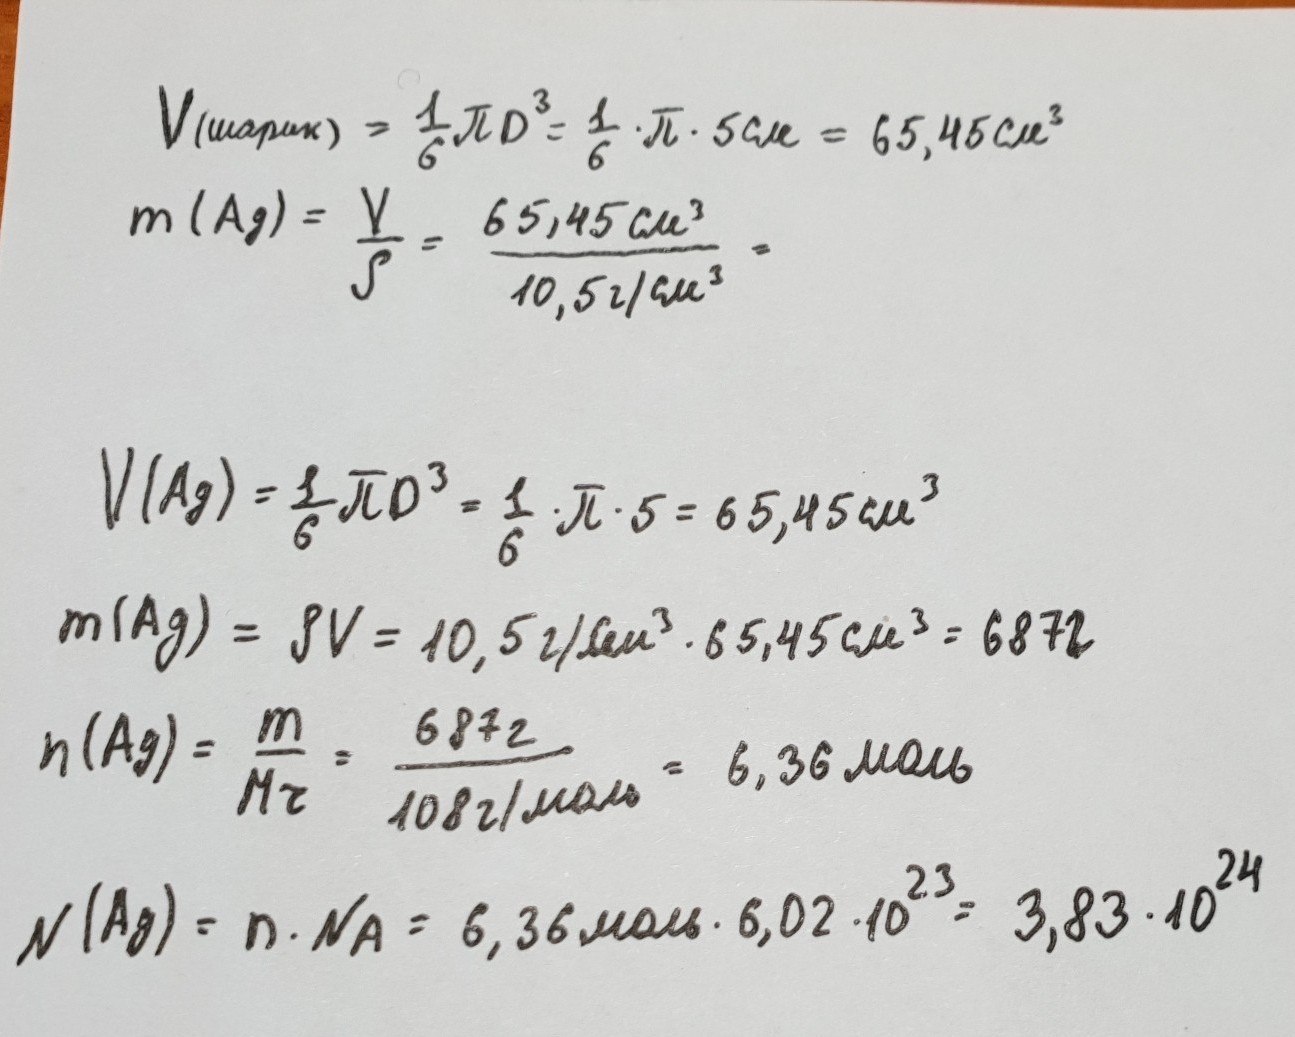 V(шарик) = 1/6 πD³ = 1/6 · π · 5см = 65,45см³
m(Ag) = V/ρ = 65,45см³/10,5г/см³ =
V(Ag) = 1/6 πD³ = 1/6 · π · 5 = 65,45см³
m(Ag) = ρV = 10,5г/см³ · 65,45см³ = 687г
n(Ag) = m/Mr = 687г/108г/моль = 6,36моль
N(Ag) = n · NA = 6,36моль · 6,02 · 10²³ = 3,83 · 10²⁴